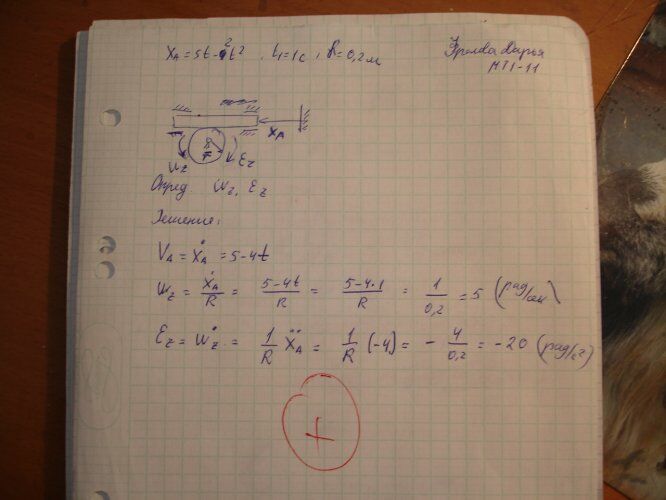 x_A = 5t - 2t², t₁ = 1 с, R = 0,2 м
Фролова Дарья
МТ1-11
R
x_A
ω_z ε_z
Опред ω_z, ε_z
Решение:
V_A = ẋ_A = 5-4t
ω_z = ẋ_A/R = (5-4t)/R = (5-4·1)/R = 1/0,2 = 5 (рад/сек)
ε_z = ω̇_z = 1/R ẍ_A = 1/R (-4) = - 4/0,2 = -20 (рад/с²)
+